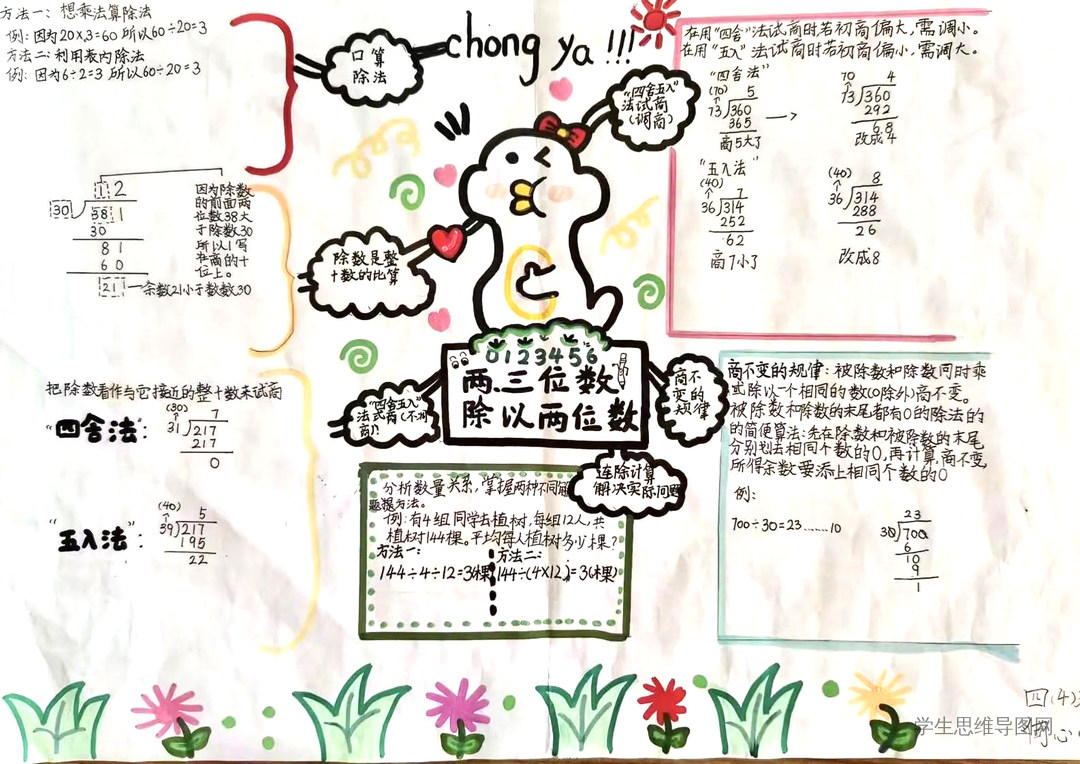 方法一：想乘法算除法
例：因为20×3=60 所以60÷20=3
方法二：利用表内除法
例：因为6÷2=3 所以60÷20=3
口算
除法
chong ya !!!
"四舍五入"
法试商
(调商)
在用"四舍"法试商时若初商偏大，需调小。
在用"五入"法试商时若初商偏小，需调大。
"四舍法"
(70) 5
73 360
365
商5大了
70 4
73 360
292
68
改成4
"五入法"
(40) 7
36 314
252
62
商7小了
(40) 8
36 314
288
26
改成8
12
30 381
30
81
60
21
余数21小于数数30
因为除数
的前面两
位数38大
于除数30
所以1写
在商的十
位上。
除数是整
十数的比算
把除数看作与它接近的整十数来试商
"四舍法"：
(30) 7
31 217
217
0
"五入法"：
(40) 5
39 217
195
22
"四舍五入"
法式商(不调
商)
0123456
两、三位数
除以两位数
商不
变的
规律
商不变的规律：被除数和除数同时乘
或除以一个相同的数(0除外)商不变。
被除数和除数的末尾都有0的除法的
的简便算法：先在除数和被除数的末尾
分别划去相同个数的0，再计算，商不变，
所得余数要添上相同个数的0
例：
700÷30=23……10
23
30 700
6
10
9
1
连除计算
解决实际问题
分析数量关系，掌握两种不同解
题方法。
例：有4组同学去植树，每组12人，共
植树144棵。平均每人植树多少棵？
方法一：
144÷4÷12=3(棵)
方法二：
144÷(4×12)=3(棵)
四(4)
学生思维导图网